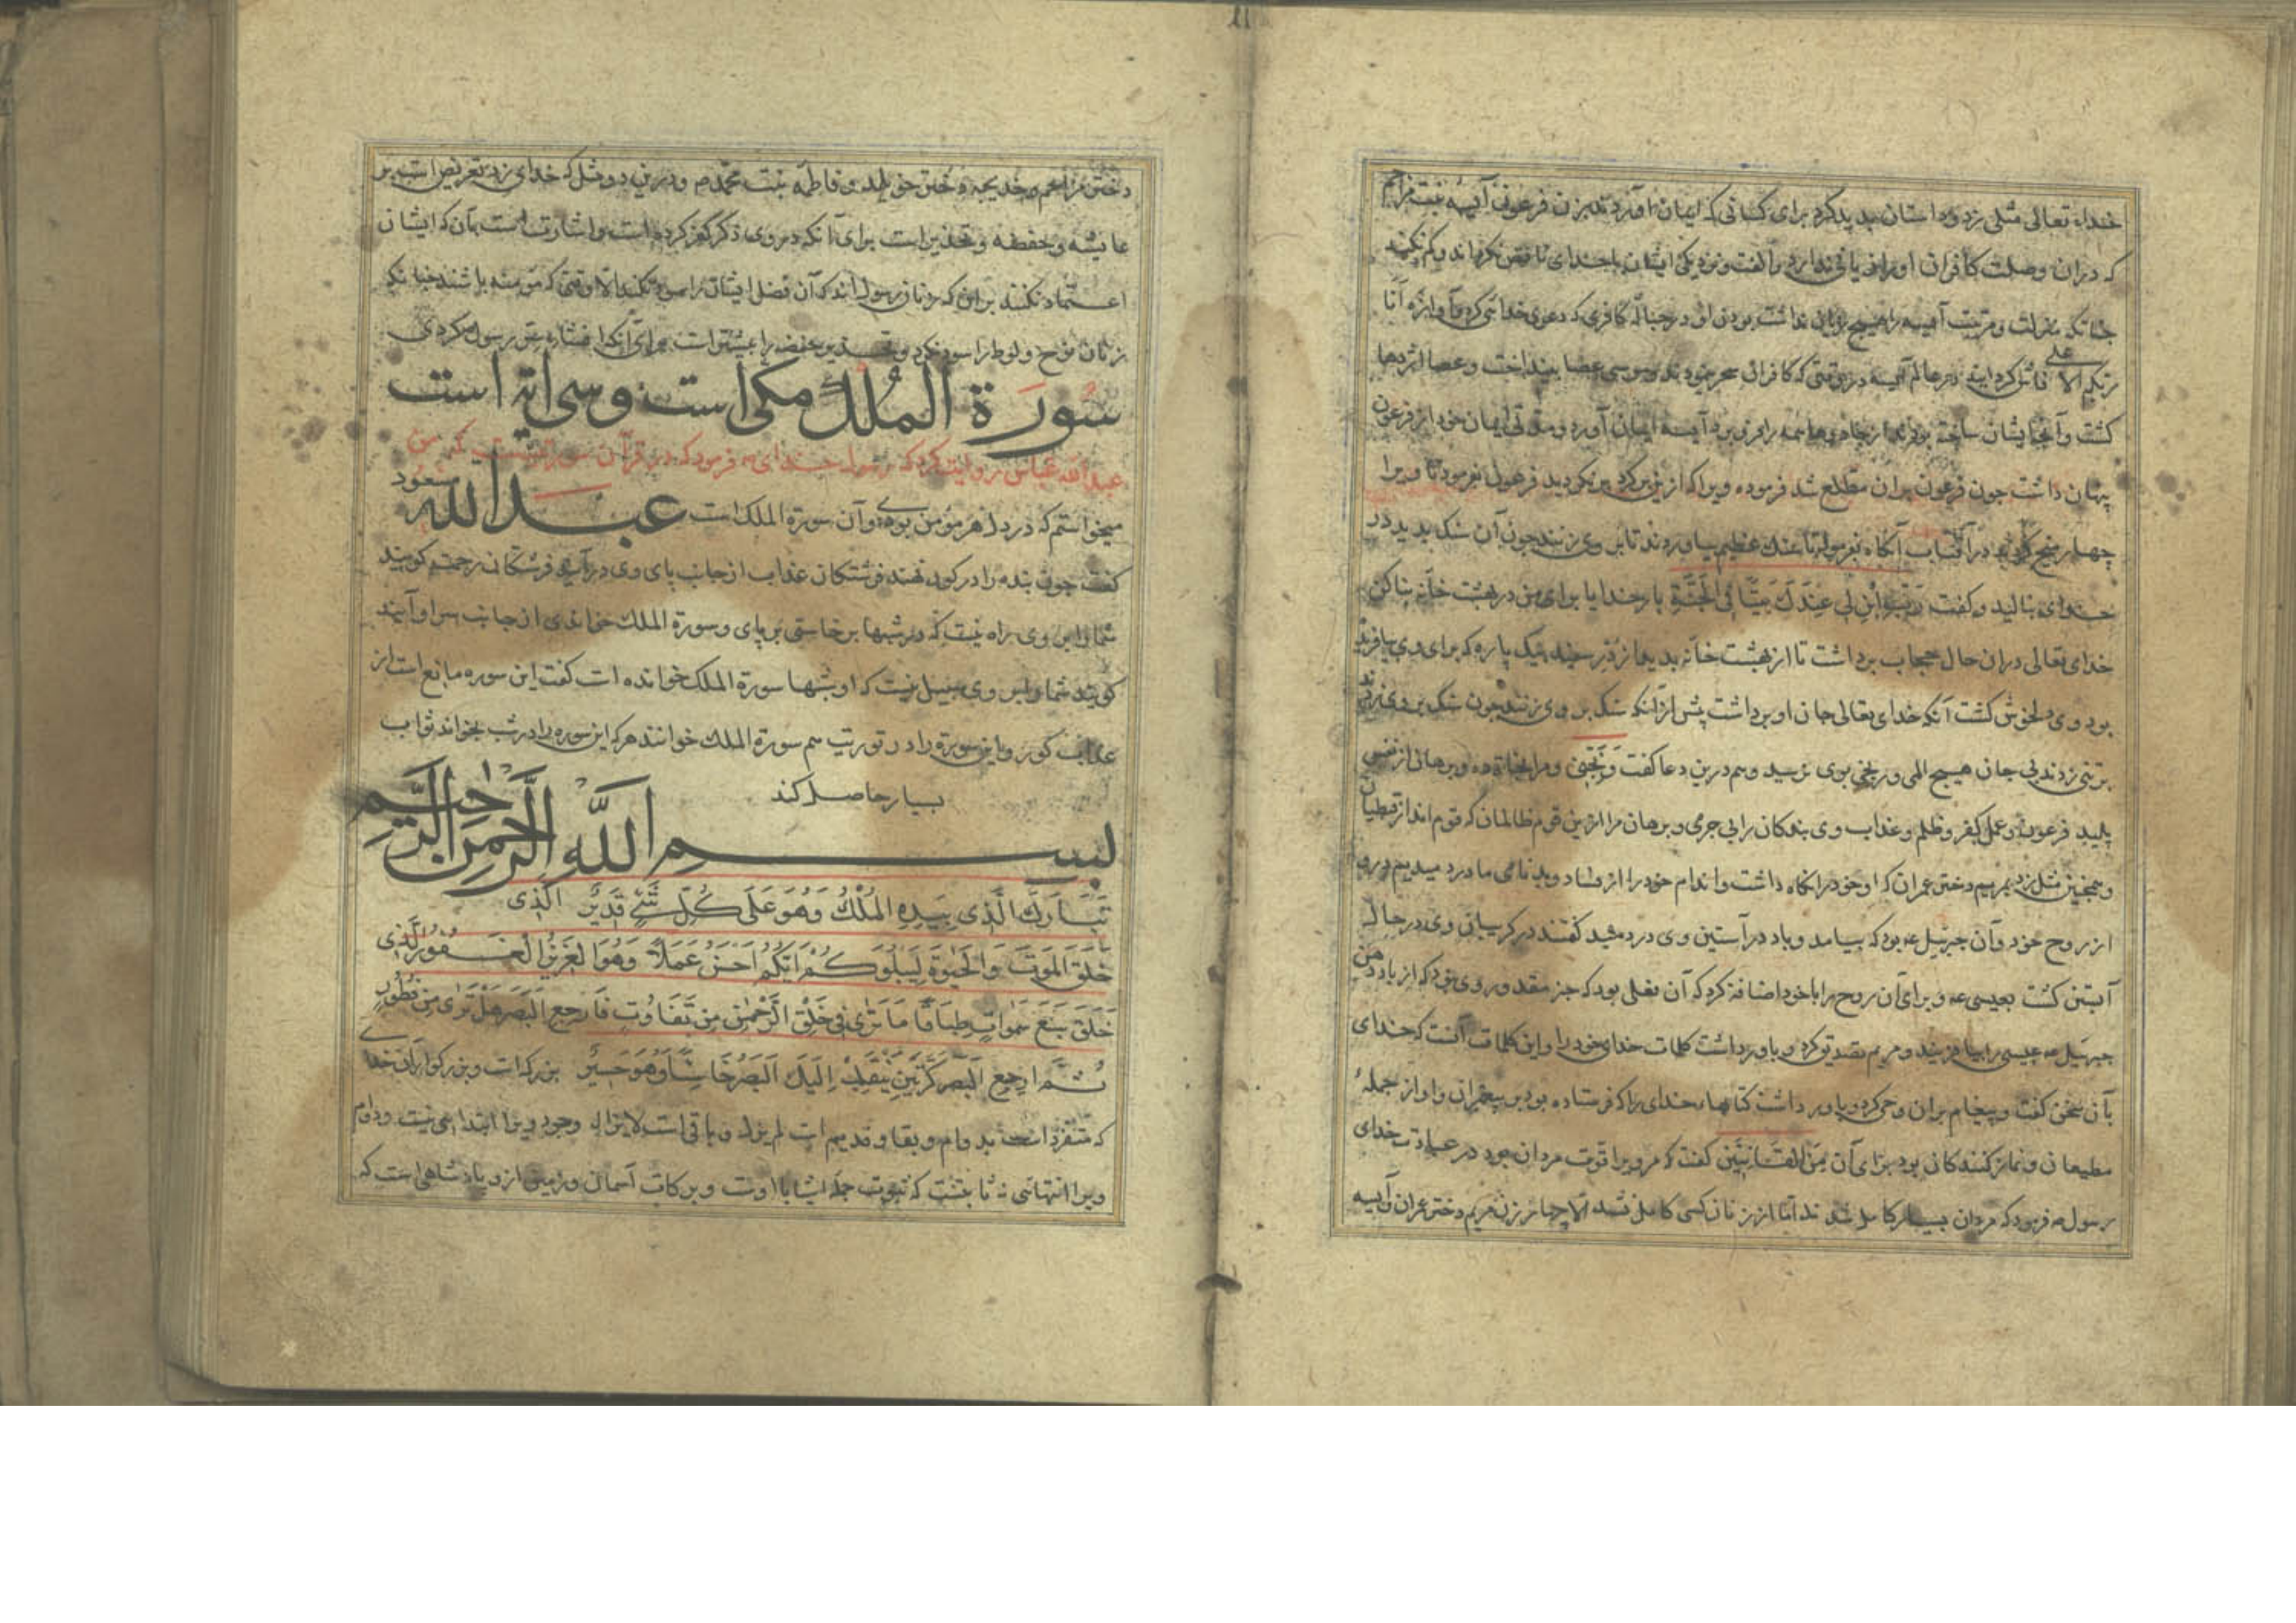 خداء تعالی مثلی زد و داستان پدید کرد برای کسانی که ایمان آوردند بزن فرعون آسیه بنت مزاحم
که دران وصلت کافران اورا زیانی ندارد و الفت و نزدیکی ایشان با خدای نا نقص نکرداند و کم نکند
جنانکه منزلت و مرتبت آسیه را هیچ زیان نداشت بودن او در حباله کافری که دعوی خدائی کرد و آوازه انا
ربکم الاعلی فاش کرد اند در عالم آسیه در وقتی که کافران سحر نمودند و موسی عصا بینداخت و عصا اژدها
کشت و آنجا ایشان ساخته بودند از جادویها همه را فرو برد آسیه ایمان آورد و مدتی ایمان خود از فرعون
پنهان داشت جون فرعون بران مطلع شد فرموده ویرا که ازین برکرد برنکردید فرعون بفرمود تا ویرا
چهار میخ کردند در آفتاب آنکاه بفرمود تا سنک عظیم بیاوردند تا بر وی زنند جون آن سنک بدید در
خدای بنالید و کفت رب ابن لی عندک بیتا فی الجنة بار خدایا برای من در بهشت خانه بنا کن
خدای تعالی دران حال حجاب برداشت تا از بهشت خانه بدید از در سفید یک پاره که برای وی بیافرید
بود وی دلخوش کشت آنکه خدای تعالی جان او برداشت پیش از آنکه سنک بر وی زنند جون سنک بر وی زدند
بر تنی زدند بی جان هیچ المی و رنجی بوی نرسید وهم درین دعا کفت ونجنی و مرا نجات ده و برهان از نفس
پلید فرعون و عمل کفر و ظلم و عذاب وی بندکان را بی جرمی و برهان مرا ازین قوم ظالمان که قوم اند از قبطیان
و همچنین مثل زد بمریم دختر عمران که او خود را نکاه داشت و اندام خود را از فساد و بدنامی ما درد میدیم درو
از روح خود وآن جبرئیل عه بود که بیامد و باد در آستین وی دردمید کفتند در کریبان وی در حال
آبستن کشت بعیسی عه و برای آن روح را با خود اضافة کرد که آن فعلی بود که جز مقدور وی نبود که از باد دهن
جبرئیل عه عیسی را بیافریند و مریم تصدیق کرد و باور داشت کلمات خدای خود را و این کلمات آنست که خدای
بآن سخن کفت و پیغام بران وحی کرد و باور داشت کتابهاء خدای را که فرستاده بود بر پیغمبران و او از جملۀ
مطیعان و نماز کنندکان بود برای آن من القانتین کفت که مرویرا قوت مردان بود در عبادت خدای
رسول عه فرمود که مردان بسیار کامل شدند اما از زنان کسی کامل نشد الا چهار زن مریم دختر عمران و آسیه
دختر مزاحم و خدیجه دختر خویلد و فاطمه بنت محمد ص و درین دو مثل که خدای زد تعریض است بر
عایشه و حفصه و تحذیر است برای آنکه در وی ذکر کفر کرده است و اشارت است بآن که ایشان
اعتماد نکنند بران که زنان رسول اند که آن فضل ایشان را سود نکند الا وقتی که مؤمنه باشند جنانکه
زنان نوح و لوط را سود نکرد و تهدید حفصه را بیشتر است برای آنکه افشاء سر رسول کردی
سورة الملک مکی است و سی ایه است
عبدالله عباس روایت کرد که رسول خدای عه فرمود که در قرآن سورتیست که من
میخواستم که در دل هر مؤمن بودی وآن سورة الملک است عبدالله مسعود
کفت جون بنده را در کور نهند فرشتکان عذاب از جانب پای وی درآیند فرشتکان رحمت کویند
شما را بر وی راه نیست که در شبها برخاستی بر پای و سورة الملک خواندی از جانب سر او آیند
کویند شما را بر وی سبیل نیست که او شبها سورة الملک خوانده است کفت این سوره مانع است از
عذاب کور و این سوره را در توریت هم سورة الملک خوانند هرکه این سوره را در شب بخواند ثواب
بسیار حاصل کند
بسم الله الرحمن الرحیم
تَبَارَكَ الَّذِی بِیَدِهِ الْمُلْكُ وَهُوَ عَلَى كُلِّ شَیْءٍ قَدِیرٌ الَّذِی
خَلَقَ الْمَوْتَ وَالْحَیٰوةَ لِیَبْلُوَكُمْ اَیُّكُمْ اَحْسَنُ عَمَلاً وَهُوَ الْعَزِیزُ الْغَفُورُ الَّذِی
خَلَقَ سَبْعَ سَمٰوَاتٍ طِبَاقًا مَا تَرٰى فِی خَلْقِ الرَّحْمٰنِ مِنْ تَفَاوُتٍ فَارْجِعِ الْبَصَرَ هَلْ تَرٰى مِنْ فُطُورٍ
ثُمَّ ارْجِعِ الْبَصَرَ كَرَّتَیْنِ یَنْقَلِبْ اِلَیْكَ الْبَصَرُ خَاسِئًا وَهُوَ حَسِیرٌ بزرکست و بزرکوار آن خدا
که متفرد است بدوام و بقا و قدیم است لم یزل و باقی است لایزال وجود ویرا ابتدائی نیست و دوام
ویرا انتهائی نه ثابتست که ثبوت جمله اشیا با اوست و برکات آسمان و زمین ازو پادشاهی است که